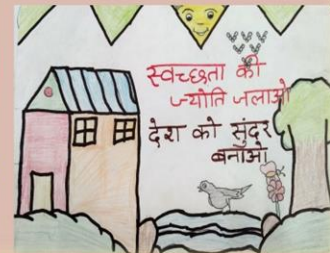 स्वच्छता की
ज्योति जलाओ
देश को सुंदर
बनाओ